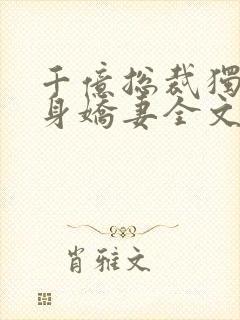 千億總裁獨
身嬌妻全文
肖雅文